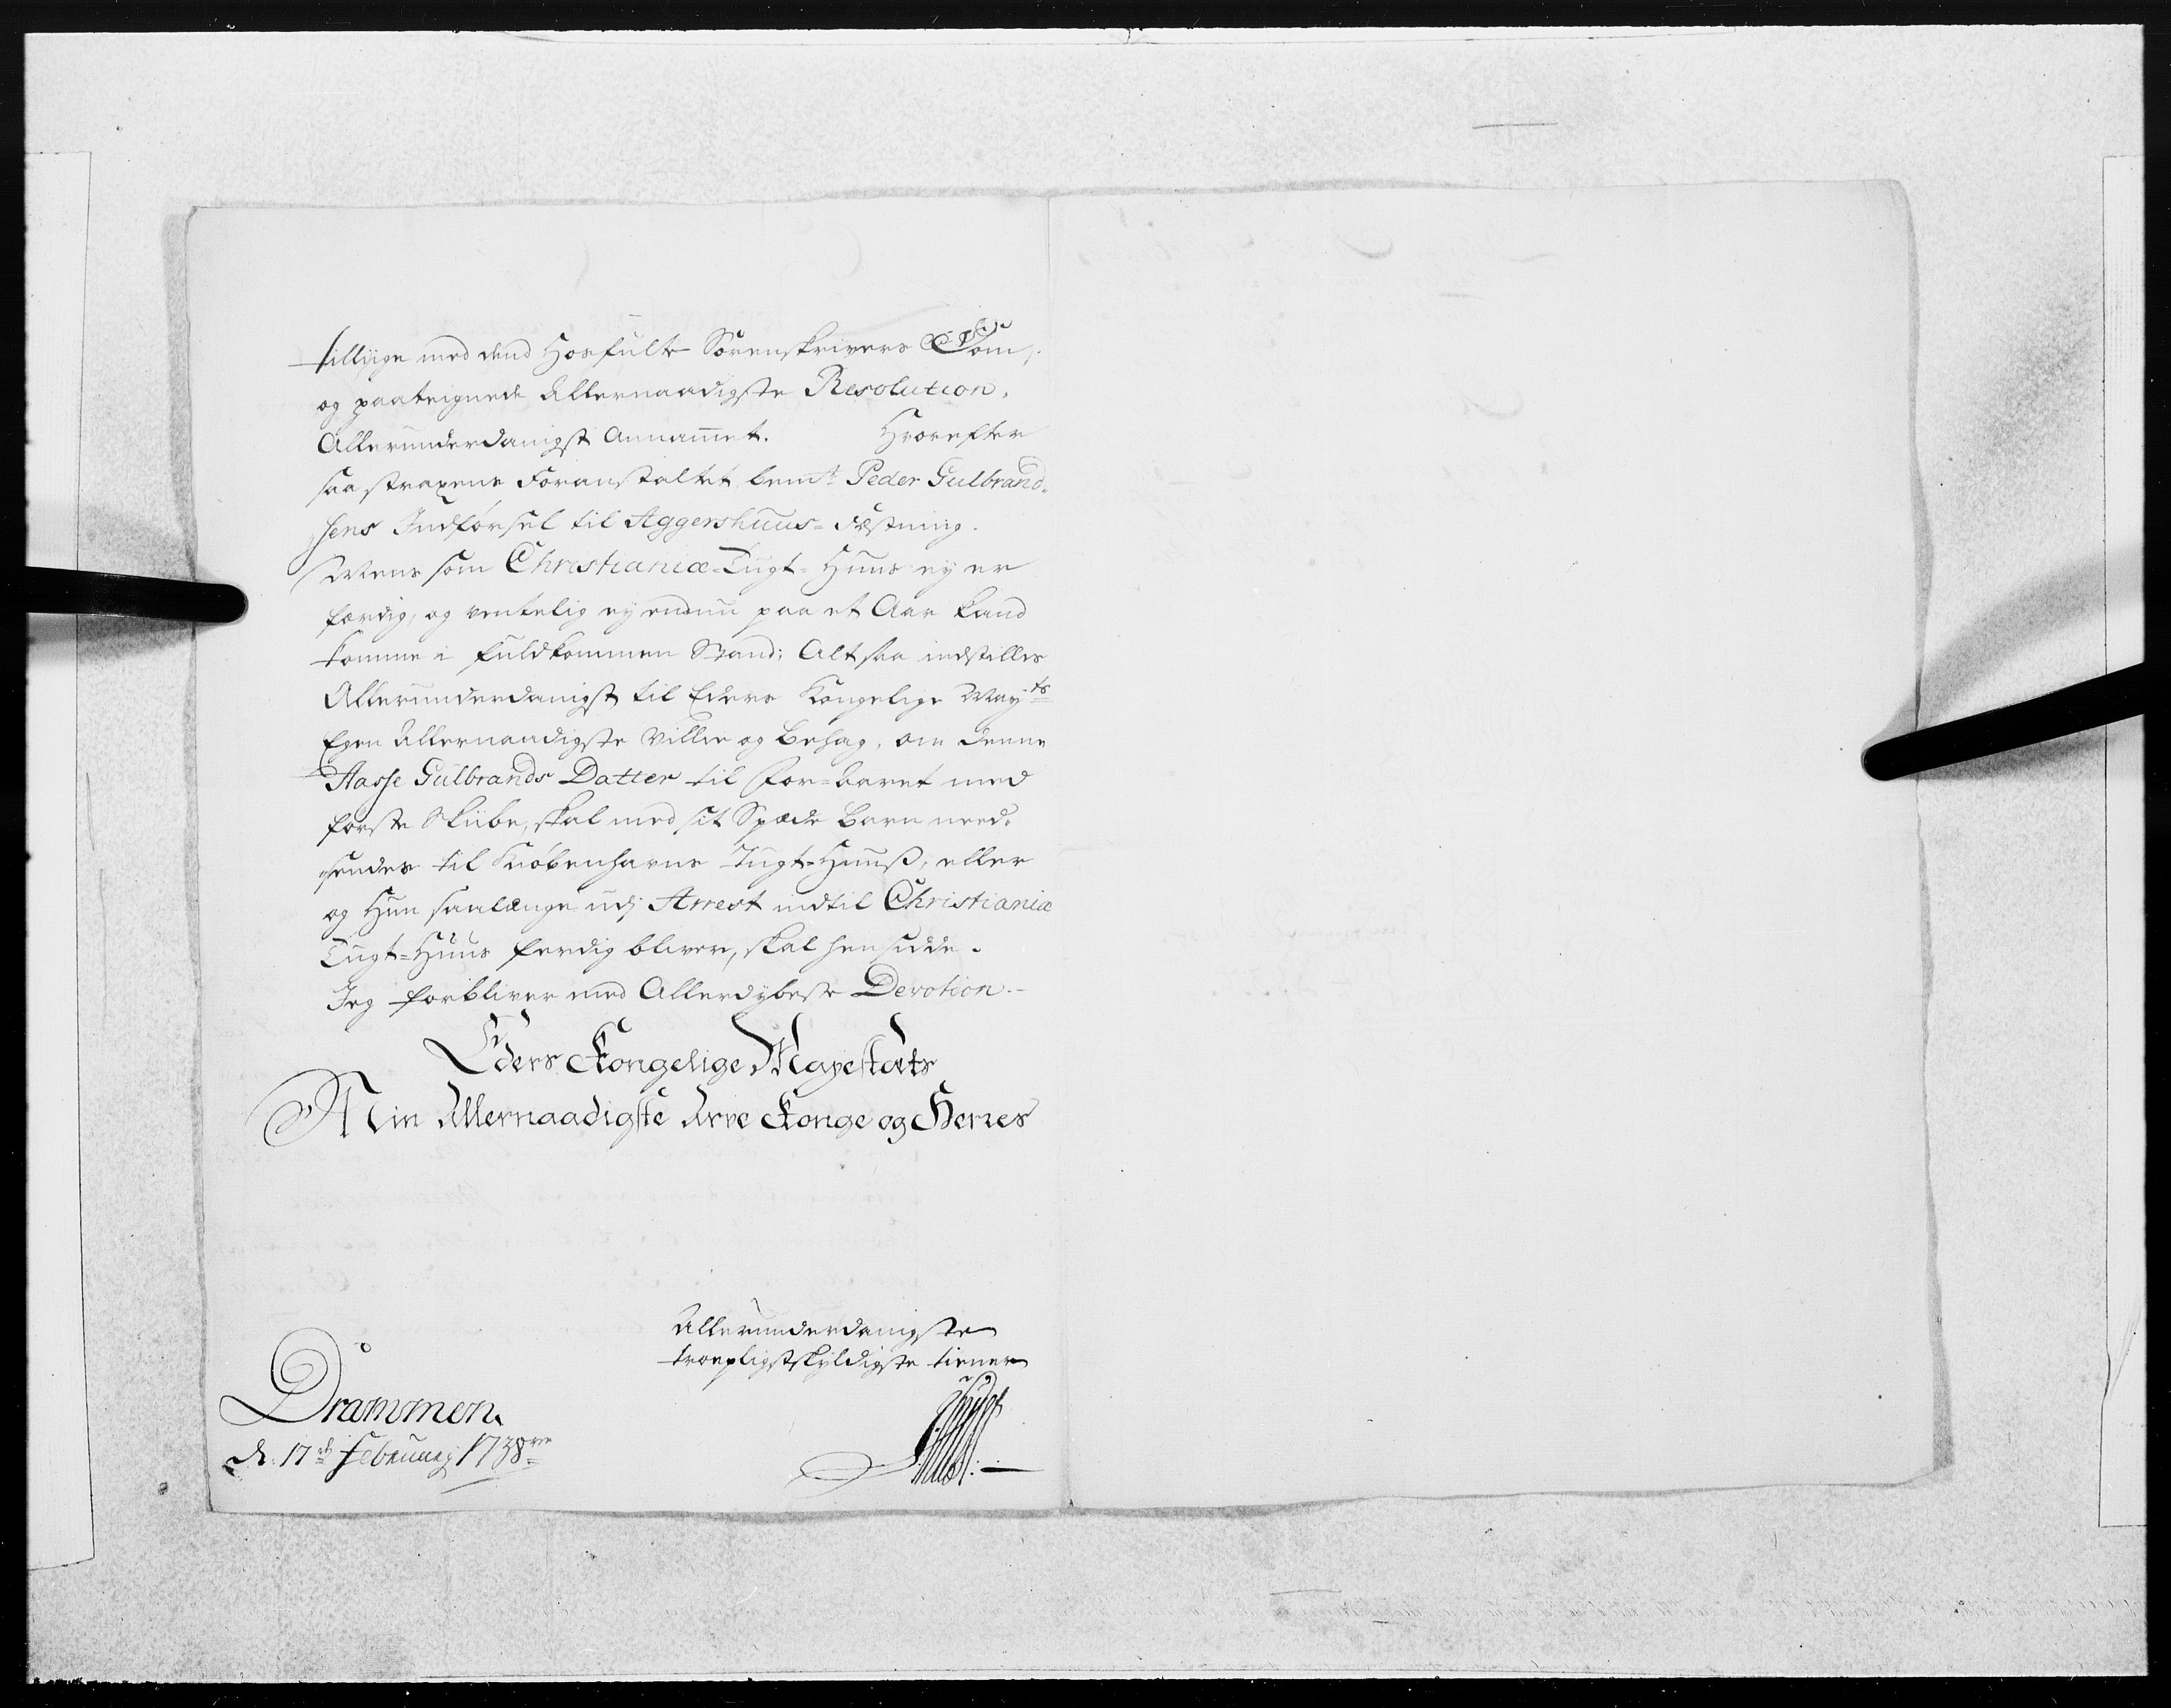 tilliige med dend Hosfulte Sorenskrivers Dom,
og paateignede Allernaadigste Resolution,
Allerunderdanigst Annammet. Hvorefter
saa straxens Foranstaltet bemte Peder Gulbrand-
sens Indførsel til Aggershuus-Fæstning.
Mens som Christianiæ-Tugt-Huus ey er
færdig, og ventelig ey endnu paa et Aar kand
komme i fuldkommen Stand; Alt saa indstilles
Allerunderdanigst til Eders Kongelige Mayts
Egen Allernaadigste Villie og Behag, om denne
Aasse Gulbrands Datter til For-Aaret med
første Skibe, skal med sit Spæde Barn need-
sendes til Kiøbenhavns Tugt-Huuß, eller
og Hun saalænge udj Arrest indtil Christianiæ
Tugt-Huus ferdig bliver, skal hensidde.
Jeg forbliver med Allerdybeste Devotion.-
Eders Kongelige Mayestæts
Min Allernaadigste Arve Konge og Herres
Allerunderdanigste
troepligstskyldigste tiener
Drammen.
d. 17de Februarj 1738